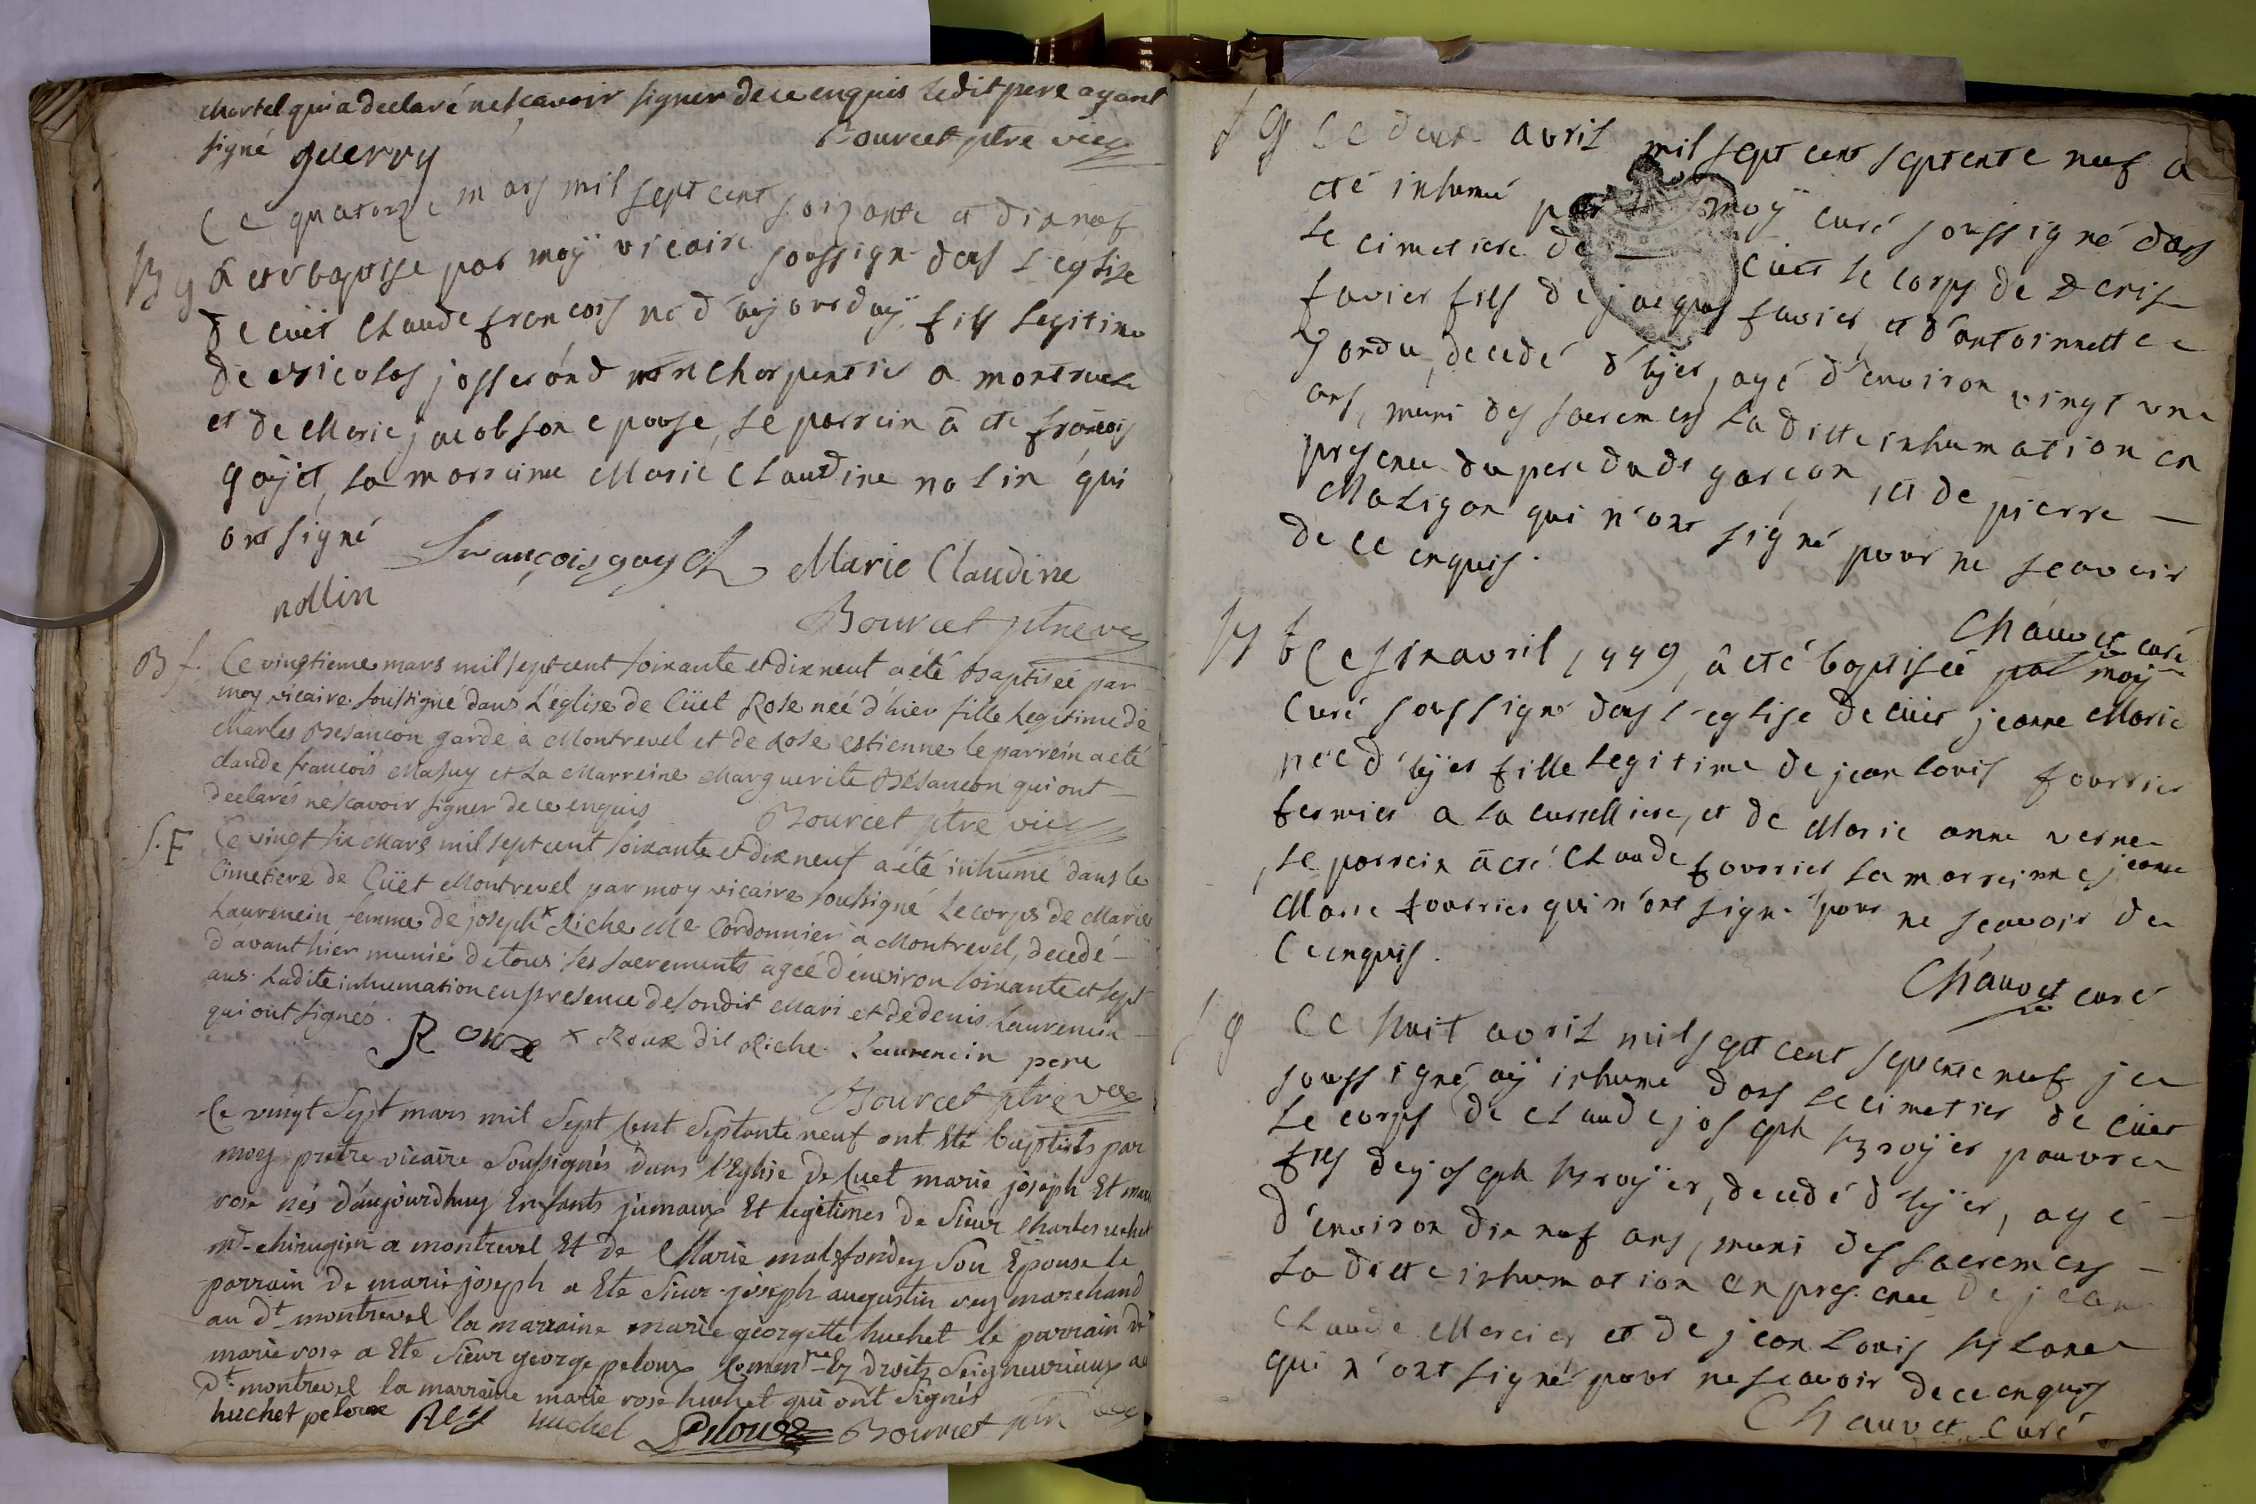 Martel qui a declaré ne scavoir signer de ce enquis ledit pere ayant
signé guerry Bourcet ptre vic
Ce quatorze mars mil sept cent soizante et dixneuf
B g a eté baptisé par moÿ vicaire soussigné dans l'église
de cuët Claude francois né d'aujourd'uÿ fils legitime
de nicolas josserand charpentier a montrevel
et de Marie jacob son epouse, le parrein a eté francois
goÿet, la marreine Marie Claudine nolin qui
ont signé
françois goyet Marie Claudine
nollin
Bourcet ptre vic
B f. Ce vingtieme mars mil sept cent soixante et dix neuf a été baptiseé par
moy vicaire soussigné dans L'église de Cüet Rose neé d'hier fille legitime de
Charles Besancon garde à Montrevel et de Rose estienne le parrein a eté
claude francois Mašuy et la Marreine Marguerite Besancon qui ont
declarés ne scavoir signer de ce enquis Bourcet ptre vic
S. F Ce vingt six Mars mil sept cent soixante et dix neuf a été inhumé dans le
Cimetiere de Cüet Montrevel par moy vicaire soussigné Le corps de Marie
Laurencin femme de joseph x Riche Me Cordonnier à Montrevel, decedé
d'avant hier munie de tous ses sacrements ageé d'environ soixante et sept
ans. Ladite inhumation en presence de sondit Mari et de denis Laurencin
qui ont signés. Roux x Roux dit Riche Laurencin pere
Bourcet ptre vic
Ce vingt sept mars mil sept cent septante neuf ont eté baptisés par
moy pretre vicaire soussignés dans l'Eglise de Cuet marie joseph Et marie
rose nés d'aujourdhuy Enfants jumaux Et legitimes de sieur Charles huchet
md chirugien a montrevel Et de Marie malfondey son Epouse le
parrain de marie joseph a Ete sieur joseph augustin rey marchand
au dt montrevel la marraine marie georgette huchet le parrain de
marie rose a Ete sieur george peloux Commre Ez droits seigneuriaux au
dt montrevel la marraine marie rose huchet qui ont signés
huchet peloux Rey huchel Peloux Bourcet ptre vic
S g Ce deux avril mil sept cent septente neuf a
eté inhumé par moÿ curé soussigné dans
le cimetiere de cuët le corps de Denis
favier fils de jacques favier, et d'antoinette
decedé d'hÿer, agé d'environ vingt une
ans, muni des sacremens la ditte inhumation en
presence du pere dudt garçon, et de pierre
Maligon qui n'ont signé pour ne scavoir
de ce enquis.
Chauvet curé
B f Ce six avril 1779, a eté baptiseé par moÿ
Curé soussigné dans l'eglise de cüet jeanne Marie
neé d'hÿer fille legitime de jean louis fourrier
fermier a la curtelliere, et de Marie anne verne
, le parrein a eté Claude fourrier la marreinne jeanne
Marie fourrier qui n'ont signé pour ne scavoir de
Ce enquis.
Chauvet curé
S g Ce huit avril mil sept cent septente neuf je
soussigné aÿ inhumé dans le cimetier de cüet
le corps de Claude joseph Broÿer pauvre
fils de joseph Broÿer, decedé d'hÿer, agé
d'environ dix neuf ans, muni des sacremens
la ditte inhumation en presence de jean
Claude Mercier et de jean louis Blanc
qui n'ont signé pour ne scavoir de ce enquis
Chauvet Curé